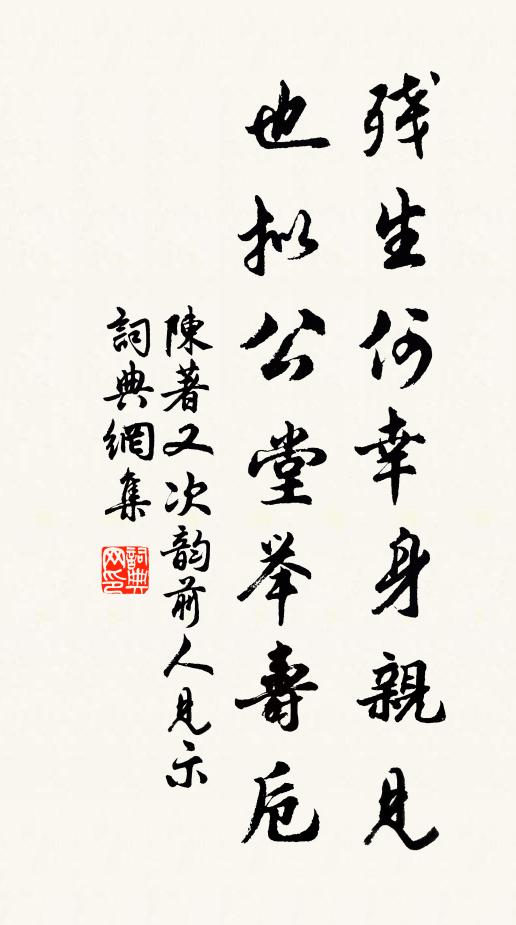 残生何幸身親見
也拟公堂举壽卮
陳著又次韵前人見示
詞典網集
詞典網印